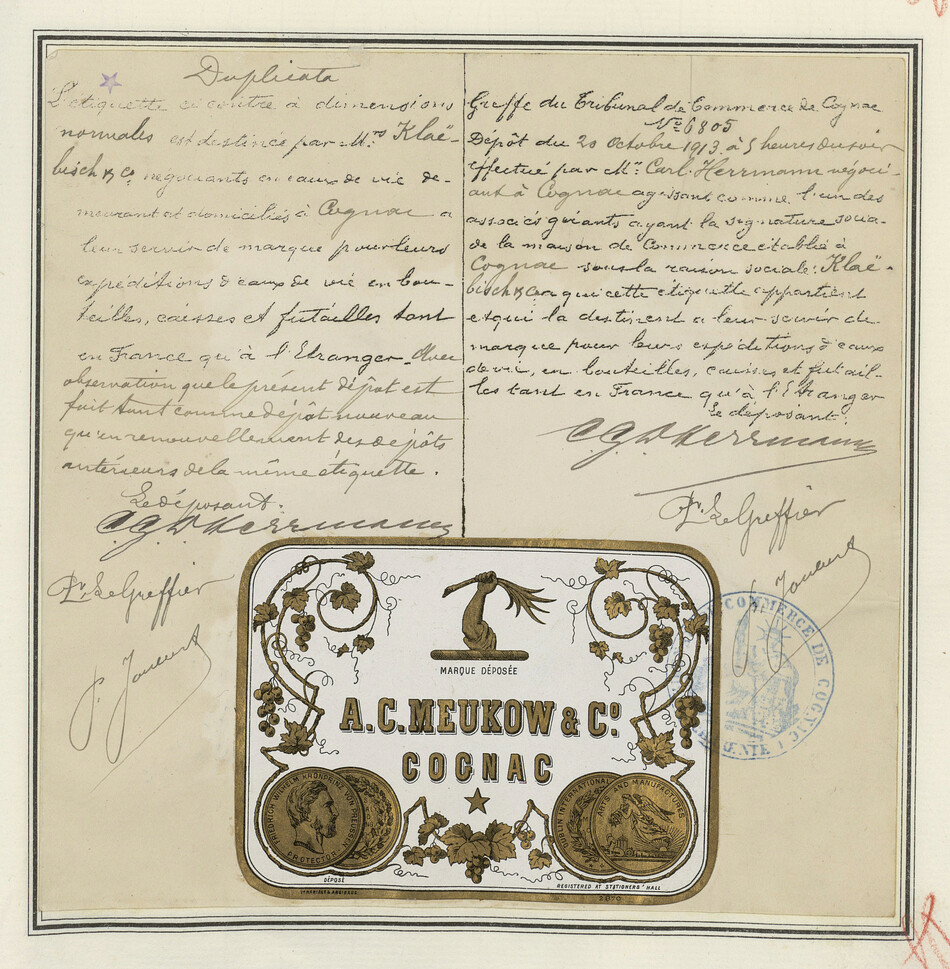 Duplicata
L'étiquette ci contre à dimensions
normales est destinée par M.rs Klaë-
bisch & Co négociants en eaux de vie de-
meurant et domiciliés à Cognac a
leur servir de marque pour leurs
expéditions d'eaux de vie en bou-
teilles, caisses et futailles tant
en France qu'à l'Etranger. Avec
observation que le présent dépôt est
fait tant comme dépôt nouveau
qu'en renouvellement des dépôts
antérieurs de la même étiquette.
Le déposant.
C.G.D. Herrmann
Pr. Le Greffier
Greffe du Tribunal de Commerce de Cognac
No. 6805
Dépôt du 20 Octobre 1913 à 5 heures du soir
effectué par Mr. Carl Herrmann négoci-
ant à Cognac agissant comme l'un des
associés gérants ayant la signature socia-
le de la maison de Commerce établie à
Cognac sous la raison sociale: Klaë-
bisch & Co a qui cette étiquette appartient
et qui la destinent a leur servir de
marque pour leurs expéditions d'eaux
de vie, en bouteilles, caisses et futail-
les tant en France qu'à l'Etranger
Le déposant.
C.G.D. Herrmann
Pr. Le Greffier
COMMERCE DE COGNAC
MARQUE DÉPOSÉE
A.C. MEUKOW & Co.
COGNAC
FRIEDRICH WILHELM KRONPRINZ VON PREUSSEN
PROTECTOR
DUBLIN INTERNATIONAL
ARTS AND MANUFACTURES
DÉPOSÉ
REGISTERED AT STATIONERS' HALL